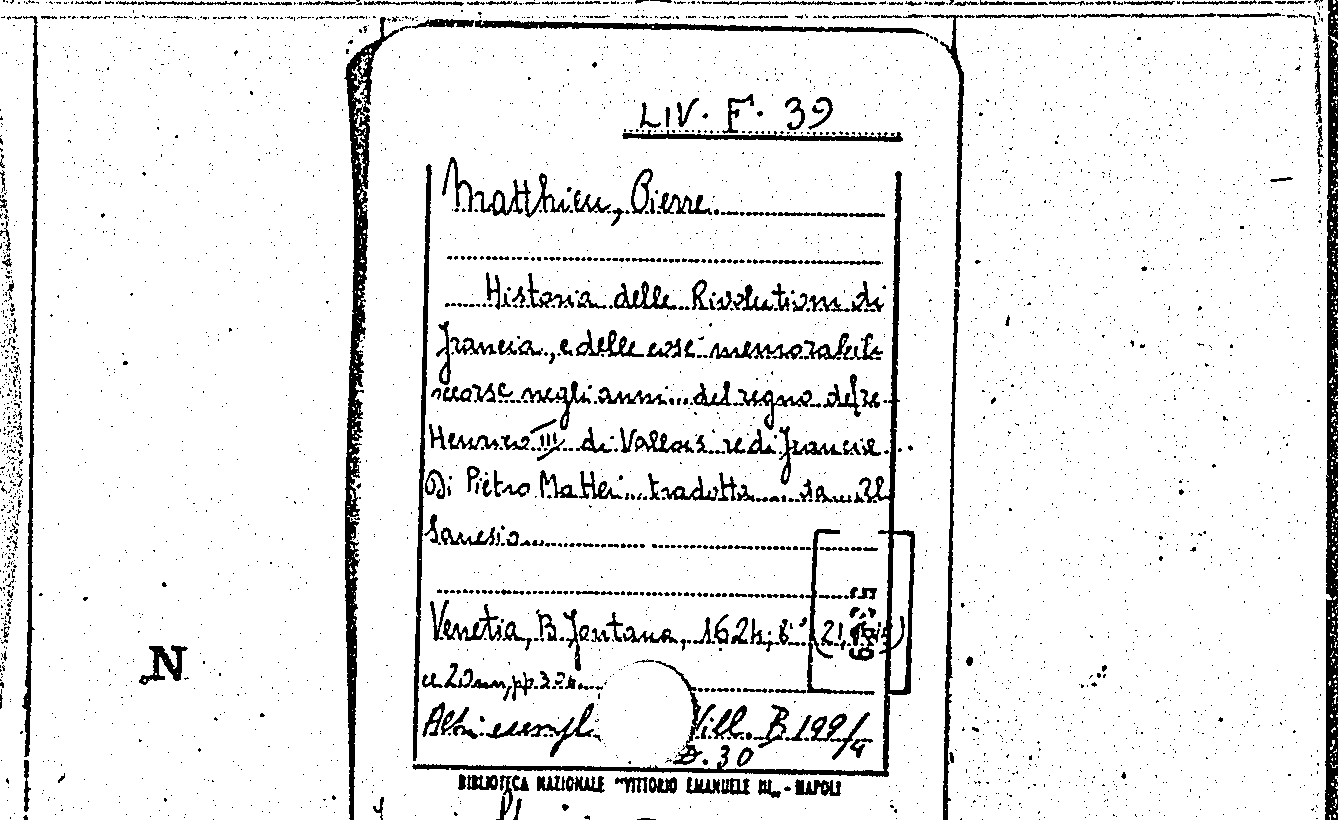 LIV. F. 39
Matthieu, Pierre
Historia delle Rivolutioni di
Francia, e delle cose memorabili
occorse negli anni... del regno del re
Henrico III di Vallois re di Francia...
Di Pietro Mattei... tradotta...
Sanesio...
Venetia, B. Fontana, 1624; 8° (21,
Altri esempl Vill. B 199/
D. 30
BIBLIOTECA NAZIONALE "VITTORIO EMANUELE III" - NAPOLI
N